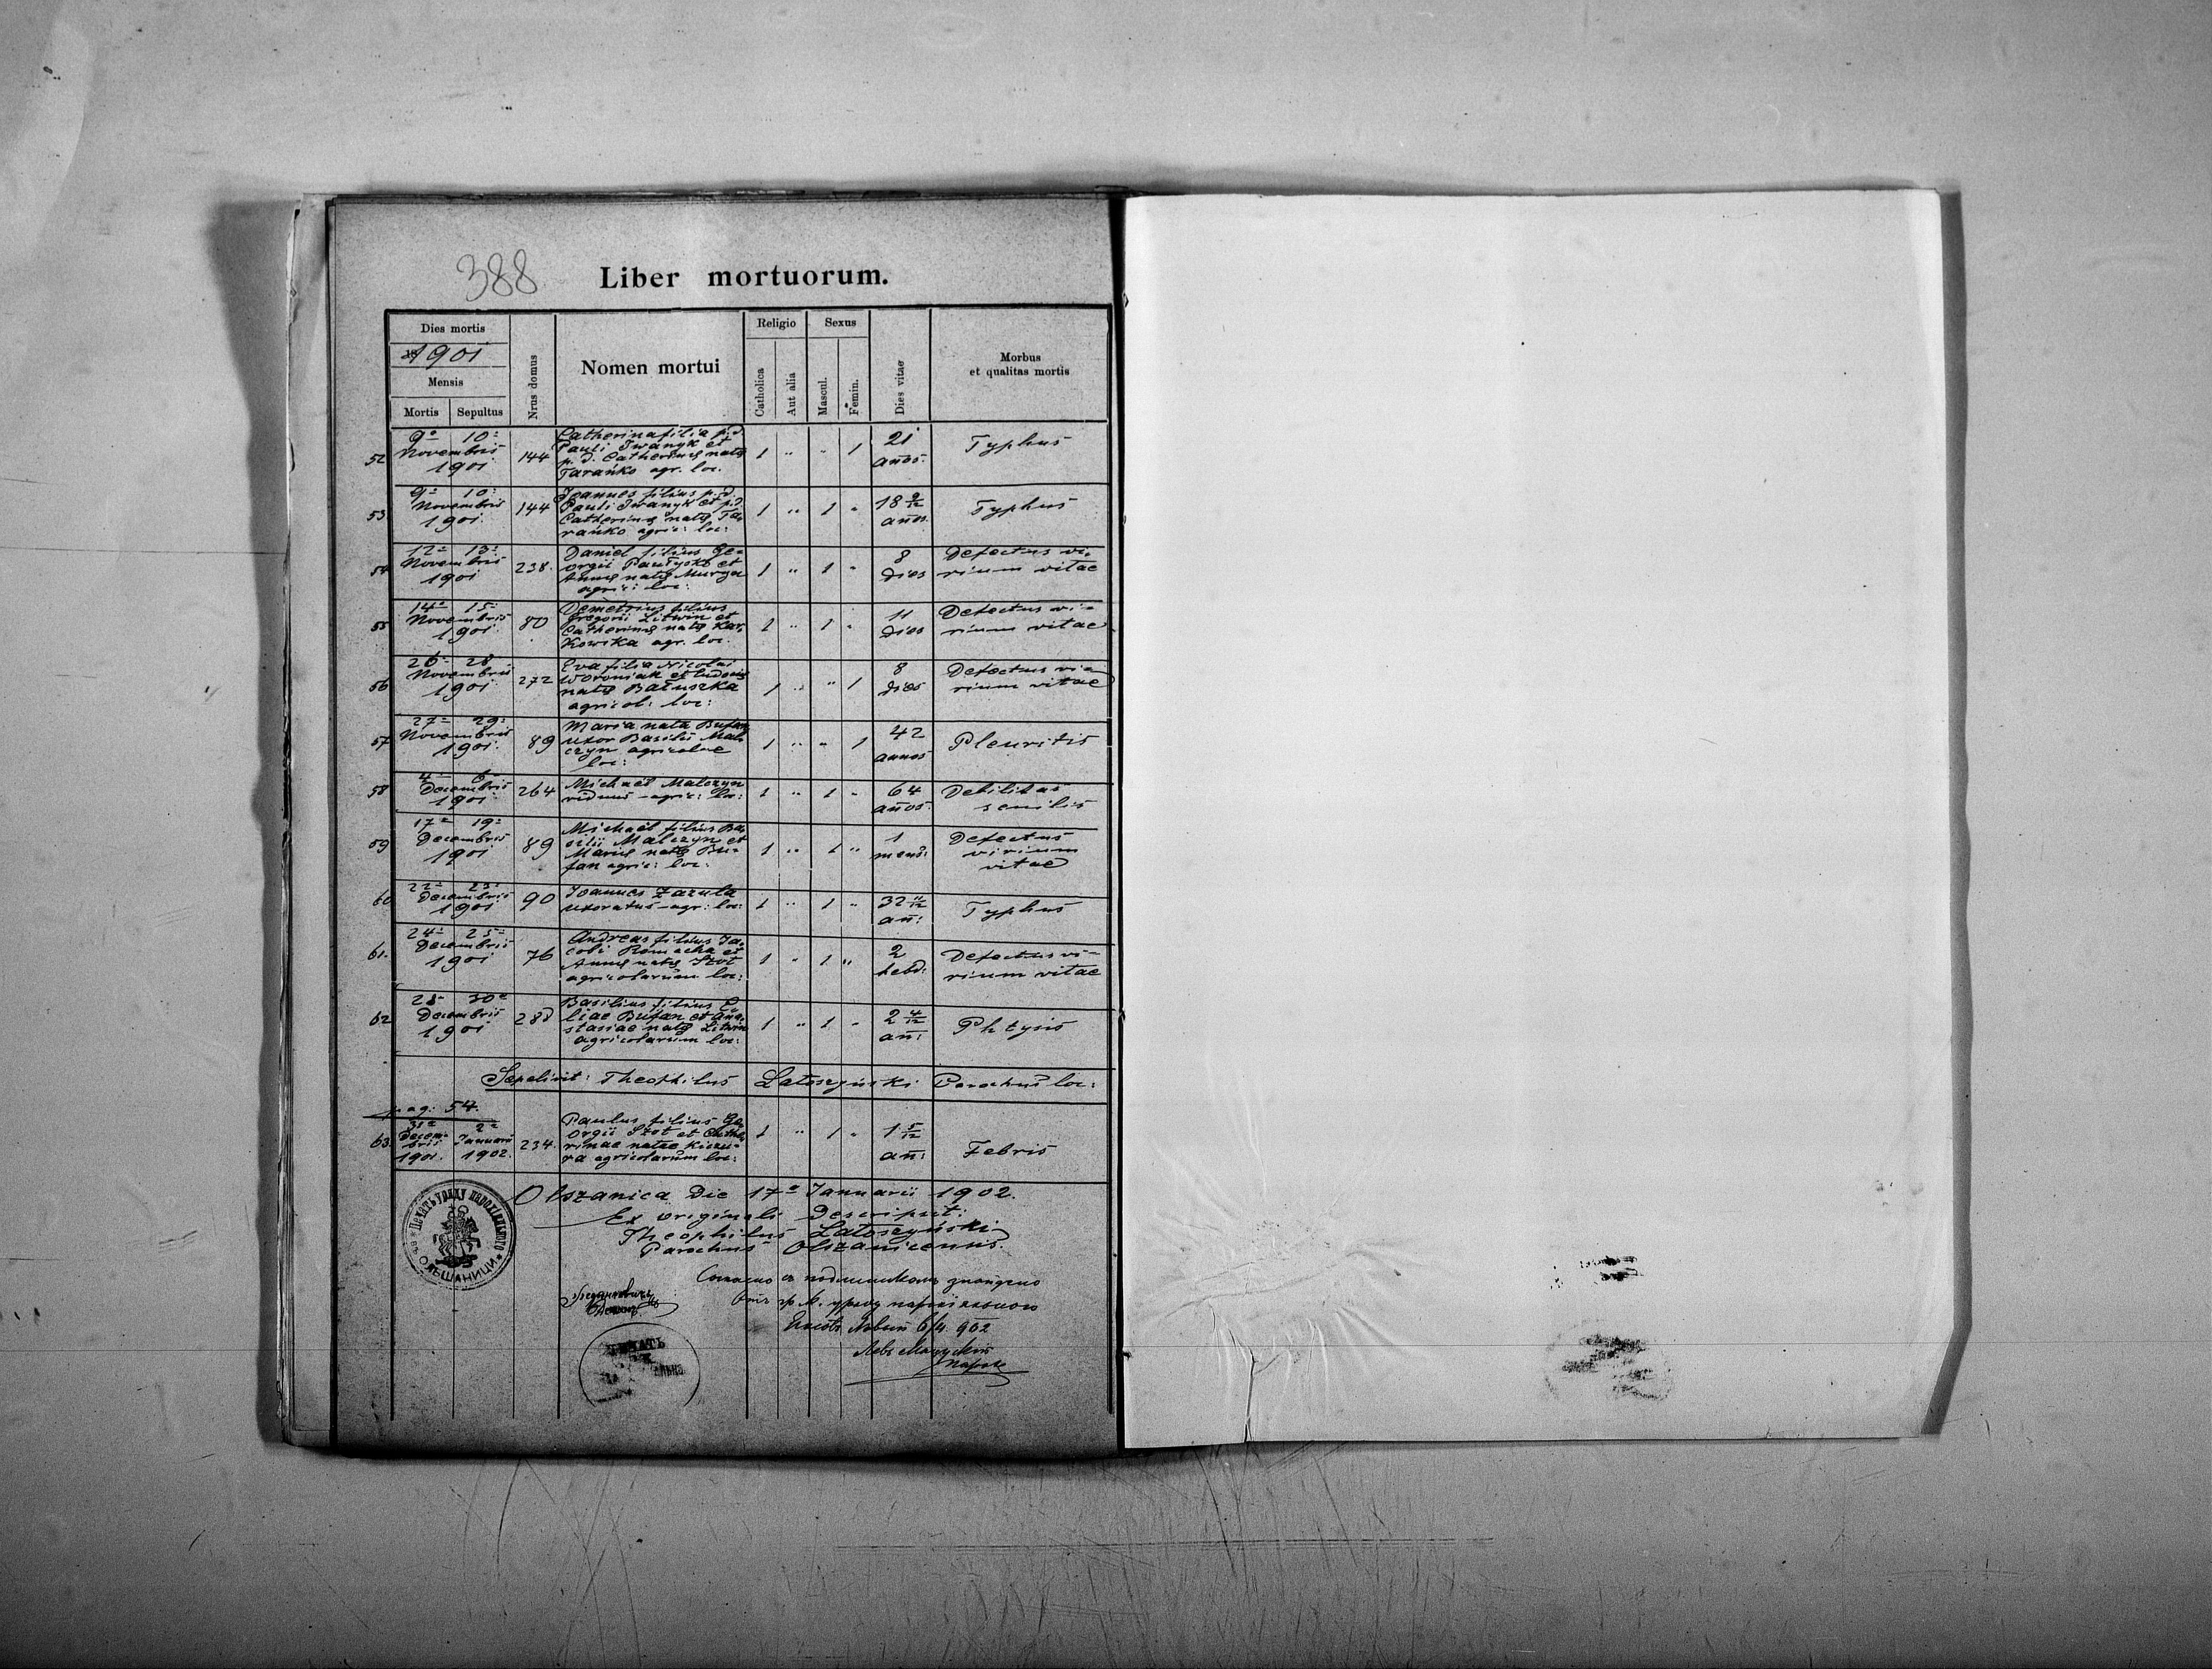 388
Liber mortuorum.
Dies mortis
1901
Mensis
Mortis Sepultus
Nrus domus
Nomen mortui
Religio
Catholica
Aut alia
Sexus
Mascul.
Femin.
Dies vitae
Morbus
et qualitas mortis
52 9ª 10ª Novembris 1901 144
Catherina filia p.d.
Pauli Iwanyk et
p. d. Catherinę natę
Tarańko agr. loc.
1 " " 1 21 años. Typhus
53 9ª 10ª Novembris 1901. 144
Joannes filius p.d.
Pauli Iwanyk et p.d.
Catherinę natę Ta-
rańko agric: loc:
1 " 1 " 18 9/12 años. Typhus
54 12ª 13ª Novembris 1901 238.
Daniel filius Ge-
orgii Pautysko et
Annę natę Murza
agric: loc:
1 " 1 " 8 dies
Defectus vi-
rium vitae
55 14ª 15ª Novembris 1901. 80
Demetrius filius
Gregorii Litwin et
Catherinę natę Kar-
kowska agr. loc.
1 " 1 " 11 dies
Defectus vi-
rium vitae
56 26ª 28 Novembris 1901. 272
Eva filia Nicolai
Woroniak et Eudocię
natę Batuszka
agricol: loc:
1 " " 1 8 dies
Defectus vi-
rium vitae
57 27ª 29ª Novembris 1901. 89
Maria nata Bufan
uxor Basilii Mal-
czyn agricolae
loc:
1 " " 1 42 annos Pleuritis
58 4ª 6ª Decembris 1901. 264
Michael Malczyn
viduus - agric: loc:
1 " 1 " 64 años.
Debilitas
senilis
59 17ª 19ª Decembris 1901 89
Michaël filius Ba-
silii Malczyn et
Marię natę Bu-
fan agric: loc:
1 " 1 " 1 mens:
Defectus
virium
vitae
60 22ª 23ª Decembris 1901 90
Joannes Zazula
uxoratus - agr: loc:
1 " 1 " 32 11/12 añ: Typhus
61. 24ª 25ª Decembris 1901 76
Andreas filius Ja-
cobi Romacha et
Annę natę Szot
agricolarum loc:
1 " 1 " 2 hebd:
Defectus vi-
rium vitae
62 28 30ª Decembris 1901 280
Basilius filius E-
liae Bufan et Ana-
stasiae natę Litwin
agricolarum loc:
1 " 1 " 2 4/12 añ: Phtysis
Sepelivit: Theophilus Latoszyński Parochus loc:
pag: 54.
63. 31ª Decembris 1901. 2ª Januarii 1902. 234.
Paulus filius Ge-
orgii Szot et Cathe-
rinae natae Kiczu-
ra agricolarum loc:
1 " 1 " 1 5/12 añ: Febris
Olszanica Die 17ª Januarii 1902.
Ex originali Descripsit:
Theophilus Latoszyński
Parochus Olszanicensis.
Печать уряду парохіяльного
Ольшаници
Согласно съ подлинникомъ
уряду парохіяльного
6/4 902
Левъ
парох